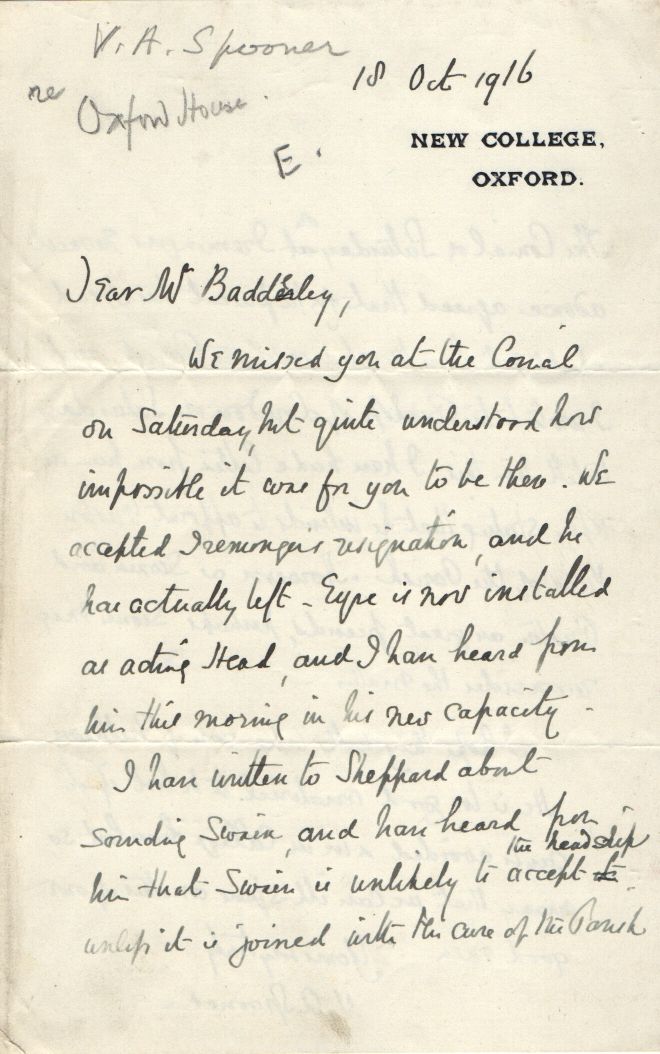 V. A. Spooner
re
Oxford House.
E.
18 Oct 1916
NEW COLLEGE,
OXFORD.
Dear Mr Baddeley,
We missed you at the Conial
on Saturday, but quite understood how
impossible it was for you to be there. We
accepted Iremonger's resignation, and he
has actually left - Eyre is now installed
as acting Head, and I have heard from
him this morning in his new capacity -
I have written to Sheppard about
sounding Swain, and have heard from
him that Swain is unlikely to accept the headship
unless it is joined with the cure of the Parish